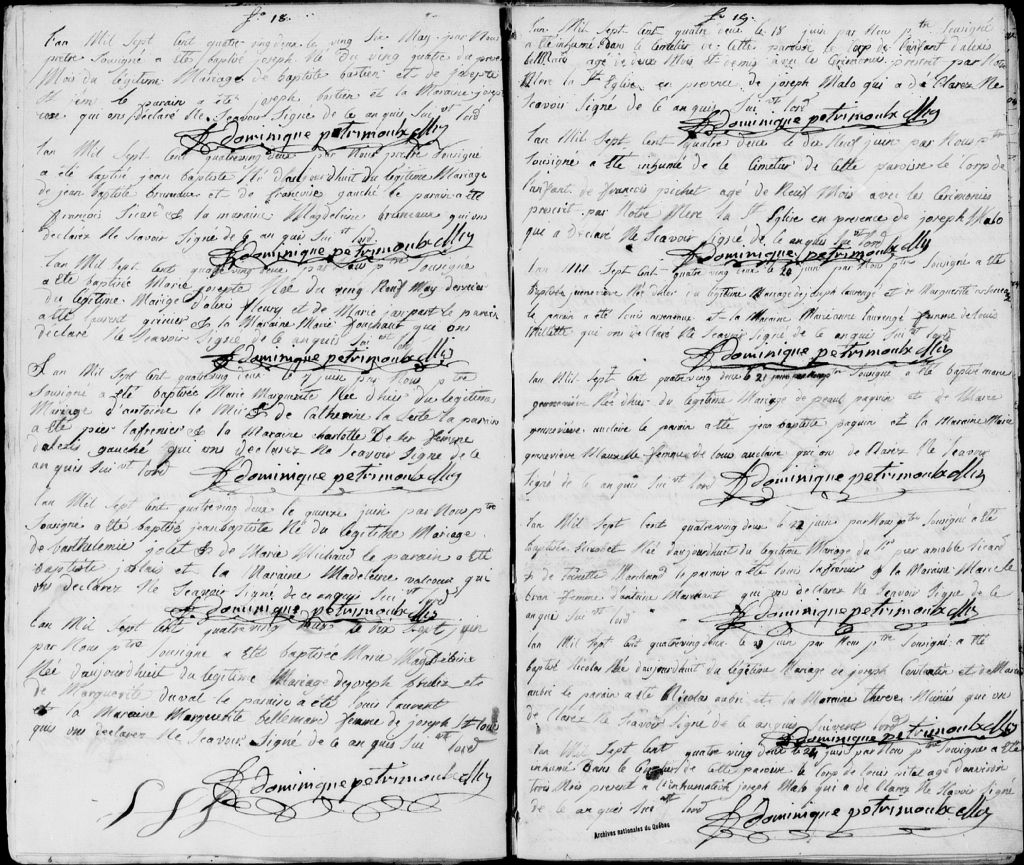 fo 18.
Lan Mil Sept Cent quatre ving deux le ving Six May par Nous
pretre Sousigné a ete baptisé joseph Né du ving quatre du present
Mois du legitime Mariage de baptiste bastien et de josepte
le parain a été joseph bastien et la Maraine
qui ons declaré Ne Scavoir Signe de ce anquis Suivt lord
f dominique petrimoulx Miss
Lan Mil Sept Cent quatreving deux par Nous pretre Sousigne
a été baptisé jean baptiste Né daujourdhuit du legitime Mariage
de jean baptiste bruneaux et de francoise gauché le parain a ete
francois Sicard & la maraine Magdeleine bruneaux qui ons
declarez Ne Scavoir Signé de ce an quis Sui vt lord
f dominique petrimoulx Miss
Lan Mil Sept Cent quatreving deux par Nous ptre Sousigné
a été baptisée Marie josepte Née du ving Neuf May dernier
du legitime Mariage d'alexi fleury et de Marie janpert le parain
a ete laurent grenier et la Maraine Marie fouchaut qui ons
declaré Ne Scavoir Signe de ce anquis Sui vt lord
f dominique petrimoulx Miss
Lan Mil Sept Cent quatreving deux le juin par Nous ptre
Sousigné a été baptisée Marie Marguerite Née d'hier du legitime
Mariage d'antoine le Mir & de Catherine la Serte la parain
a ete pier lafrenier & la Maraine charlotte De ser femme
dalexis gauché qui ons declarez Ne Scavoir Signe de ce
an quis Sui vt lord
f dominique petrimoulx Miss
Lan Mil Sept Cent quatreving deux le quinze juin par Nous ptre
Sousigne a ete baptisé jean baptiste Né du legitime Mariage
de barthelemie jolet & de Marie Michaud le parain a ete
baptiste jolais et la Maraine Madeleine valcour qui
ons declarez Ne Scavoir Signe de ce anquis Sui vt lord
f dominique petrimoulx Miss
Lan Mil Sept Cent quatreving deux le dix Sept juin
par Nous ptre Sousigne a ete baptisée Marie
Née daujourdhuit du legitime Mariage de joseph et
de Marguerite duval le parain a ete louis laurent
et la Maraine Marguerite bellemard femme de joseph St louis
quis ons declarez Ne Scavoir Signé de ce an quis Sui vt lord
f dominique petrimoulx Miss
fo 19.
Lan Mil Sept Cent quatre deux le 18 juin par Nous ptre Sousigné
a ete inhumé dans le Cimetier de Cette paroisse le Corp de Lanfant d'alexis
agé de deux Mois et demis avec les Ceremonie prescrit par Notre
Mere la Ste Eglise en presence de joseph Malo qui a declarez Ne
Scavoir Signe de ce anquis Sui vt lord
f dominique petrimoulx Miss
Lan Mil Sept Cent quatre deux le dix Neuf juin par Nous ptre
Sousigne a ete inhumé de le Cimetier de Cette paroise le Corp de
Lanfant de francois pichet agé de Neuf Mois avec les Ceremonies
prescrit par Notre Mere la St Eglise en presence de joseph Malo
que a declaré Ne Scavoir Signé de ce anquis Sui vt lord
f dominique petrimoulx Miss
Lan Mil Sept Cent quatre ving deux le 20 juin par Nous ptre Sousigne a ete
baptisée genevieve Née d'hier du legitime Mariage de joseph laurengé et de Marguerite
le parain a ete louis et la Maraine Marianne laurengé femme de louis
Millette qui ons declaré Ne Scavoir Signé de ce anquis Sui vt lord
f dominique petrimoulx Miss
Lan Mil Sept Cent quatreving deux le 21 juin ptre Sousigne a ete baptisé marie
genevieve Née d'hier du legitime Mariage de paul paquin et de Marie
genevieve auclaire le parain a ete jean baptiste paquin et la Maraine Marie
genevieve femme de louis auclair qui ons declarez Ne Scavoir
Signé de ce anquis Sui vt lord
f dominique petrimoulx Miss
Lan Mil Sept Cent quatreving deux le 22 juin par Nous ptre Sousigné a ete
baptisée Elisabet Née daujourdhuit du legitime Mariage du Sr pier amable Sicard
& de Marchand le parain a ete louis lafrenier & la Maraine Marie le
brun femme d'antoine Marchant qui ons declarez Ne Scavoir Signe de ce
anquis Sui vt lord
f dominique petrimoulx Miss
Lan Mil Sept Cent quatreving deux le juin par Nous ptre Sousigné a ete
baptisé Nicolas Né daujourdhuit du legitime Mariage de joseph Coulantin et de Marie
aubri le parain a ete Nicolas aubri et la Maraine therese Miniés qui ons
declarez Ne Scavoir Signé de ce anquis Suivent lord
f dominique petrimoulx Miss
Lan Mil Sept Cent quatre ving deux le 24 juin par Nous ptre Sousigne a ete
inhumé dans le Cimetier de Cette paroise le Corp de louis vital agé danviron
trois Mois present a l'inhumation joseph Malo qui a declarez Ne Scavoir Signé
de ce an quis Sui vt lord
f dominique petrimoulx Miss
Archives nationales du Québec